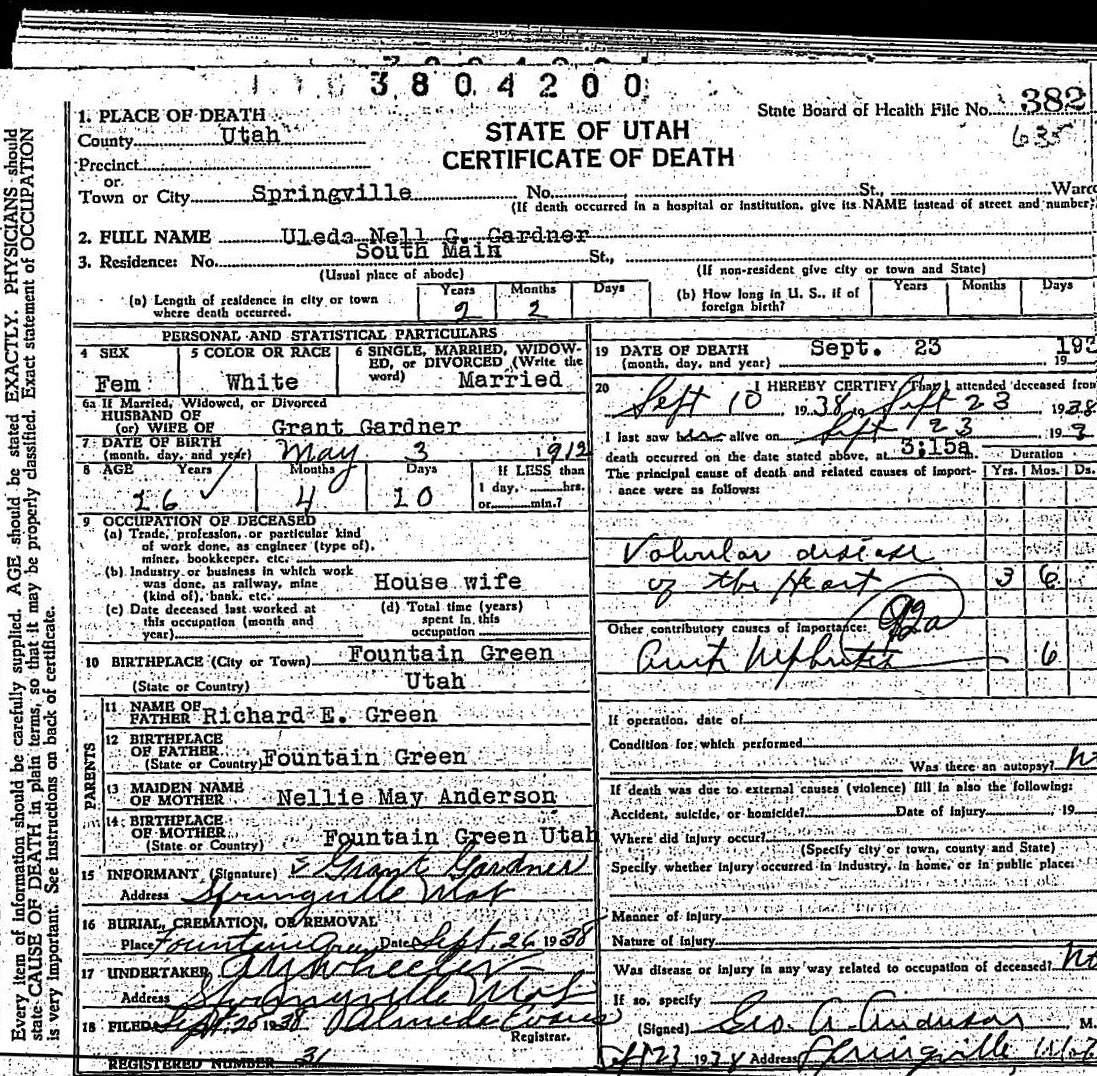 3804200
State Board of Health File No. 382
635
1. PLACE OF DEATH
County Utah
STATE OF UTAH
CERTIFICATE OF DEATH
Precinct
or
Town or City Springville No. St., Ward
(If death occurred in a hospital or institution, give its NAME instead of street and number)
2. FULL NAME Uleda Nell G. Gardner
3. Residence: No. South Main St.,
(Usual place of abode) (If non-resident give city or town and State)
(a) Length of residence in city or town where death occurred. Years 2 Months 2 Days
(b) How long in U. S., if of foreign birth? Years Months Days
PERSONAL AND STATISTICAL PARTICULARS
4 SEX
Fem
5 COLOR OR RACE
White
6 SINGLE, MARRIED, WIDOWED, OR DIVORCED (Write the word)
Married
6a If Married, Widowed, or Divorced
HUSBAND OF
(or) WIFE OF Grant Gardner
7 DATE OF BIRTH
(month, day, and year) May 3 1912
8 AGE Years Months Days If LESS than
1 day, hrs.
26 4 20 or min.?
9 OCCUPATION OF DECEASED
(a) Trade, profession, or particular kind
of work done, as engineer (type of),
miner, bookkeeper, etc.
(b) Industry or business in which work
was done, as railway, mine
(kind of), bank, etc. House wife
(c) Date deceased last worked at
this occupation (month and
year)
(d) Total time (years)
spent in this
occupation
10 BIRTHPLACE (City or Town) Fountain Green
(State or Country) Utah
PARENTS
11 NAME OF
FATHER Richard E. Green
12 BIRTHPLACE
OF FATHER
(State or Country) Fountain Green
13 MAIDEN NAME
OF MOTHER Nellie May Anderson
14 BIRTHPLACE
OF MOTHER
(State or Country) Fountain Green Utah
15 INFORMANT (Signature) Grant Gardner
Address Springville Utah
16 BURIAL, CREMATION, OR REMOVAL
Place Fountain Green Date Sept. 26 1938
17 UNDERTAKER A.Y. Wheeler
Address Springville Utah
18 FILED Sept 25 1938 Palmede Evans
Registrar.
REGISTERED NUMBER 31
19 DATE OF DEATH Sept. 23 193
(month, day, and year) 19
20 I HEREBY CERTIFY, That I attended deceased from
Sept 10 1938 to Sept 23 1938
I last saw her alive on Sept 23 19
death occurred on the date stated above, at 3:15a
Duration
The principal cause of death and related causes of importance were as follows:
Yrs. Mos. Ds.
Valvular disease
of the Heart 3 6
92a
Other contributory causes of importance:
Acute Nephritis 6
If operation, date of
Condition for which performed
Was there an autopsy? No
If death was due to external causes (violence) fill in also the following:
Accident, suicide, or homicide? Date of injury 19
Where did injury occur?
(Specify city or town, county and State)
Specify whether injury occurred in industry, in home, or in public place:
Manner of injury
Nature of injury
Was disease or injury in any way related to occupation of deceased? No
If so, specify
(Signed) Geo. A. Anderson M.
Sept 23 1938 Address Springville Utah
Every item of information should be carefully supplied. AGE should be stated EXACTLY. PHYSICIANS should
state CAUSE OF DEATH in plain terms, so that it may be properly classified. Exact statement of OCCUPATION
is very important. See instructions on back of certificate.